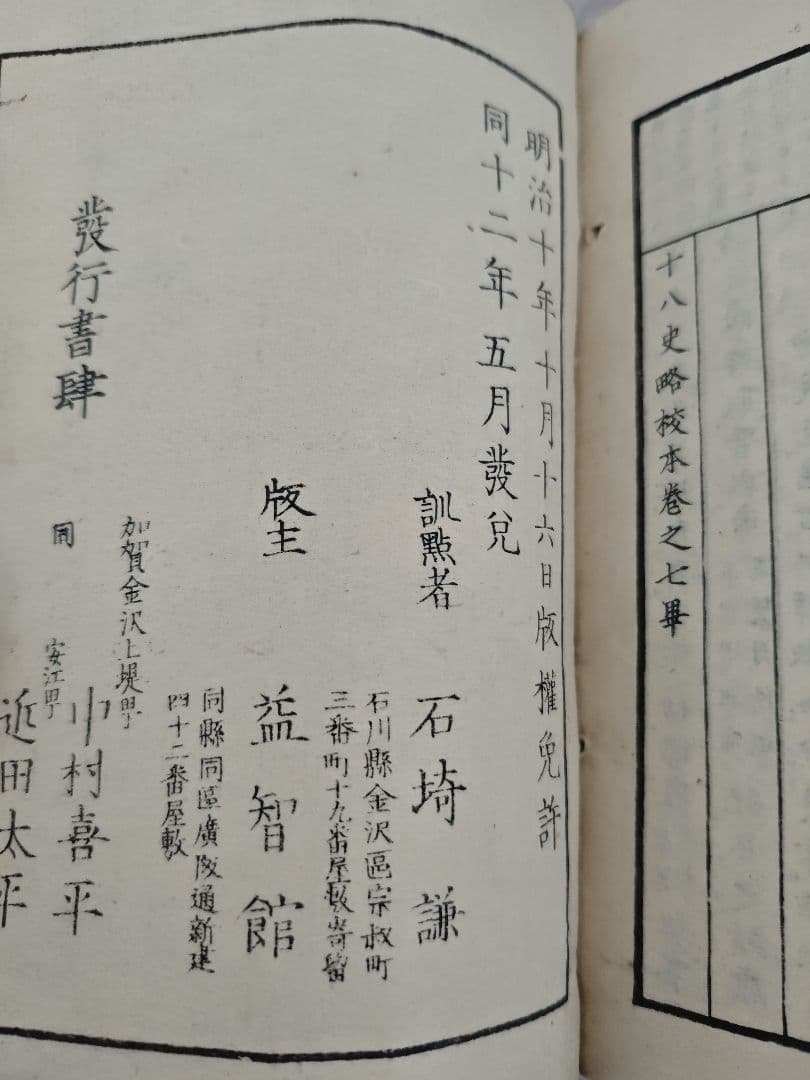 十八史略校本卷之七畢
明治十年十月十六日版權免許
同十二年五月發兌
訓點者
石川縣金沢區宗叔町
三番町十九番屋敷寄留
石埼謙
版主
同縣同區廣坂通新建
四十二番屋敷
益智館
發行書肆
加賀金沢上堤町
中村喜平
同
安江町
近田太平